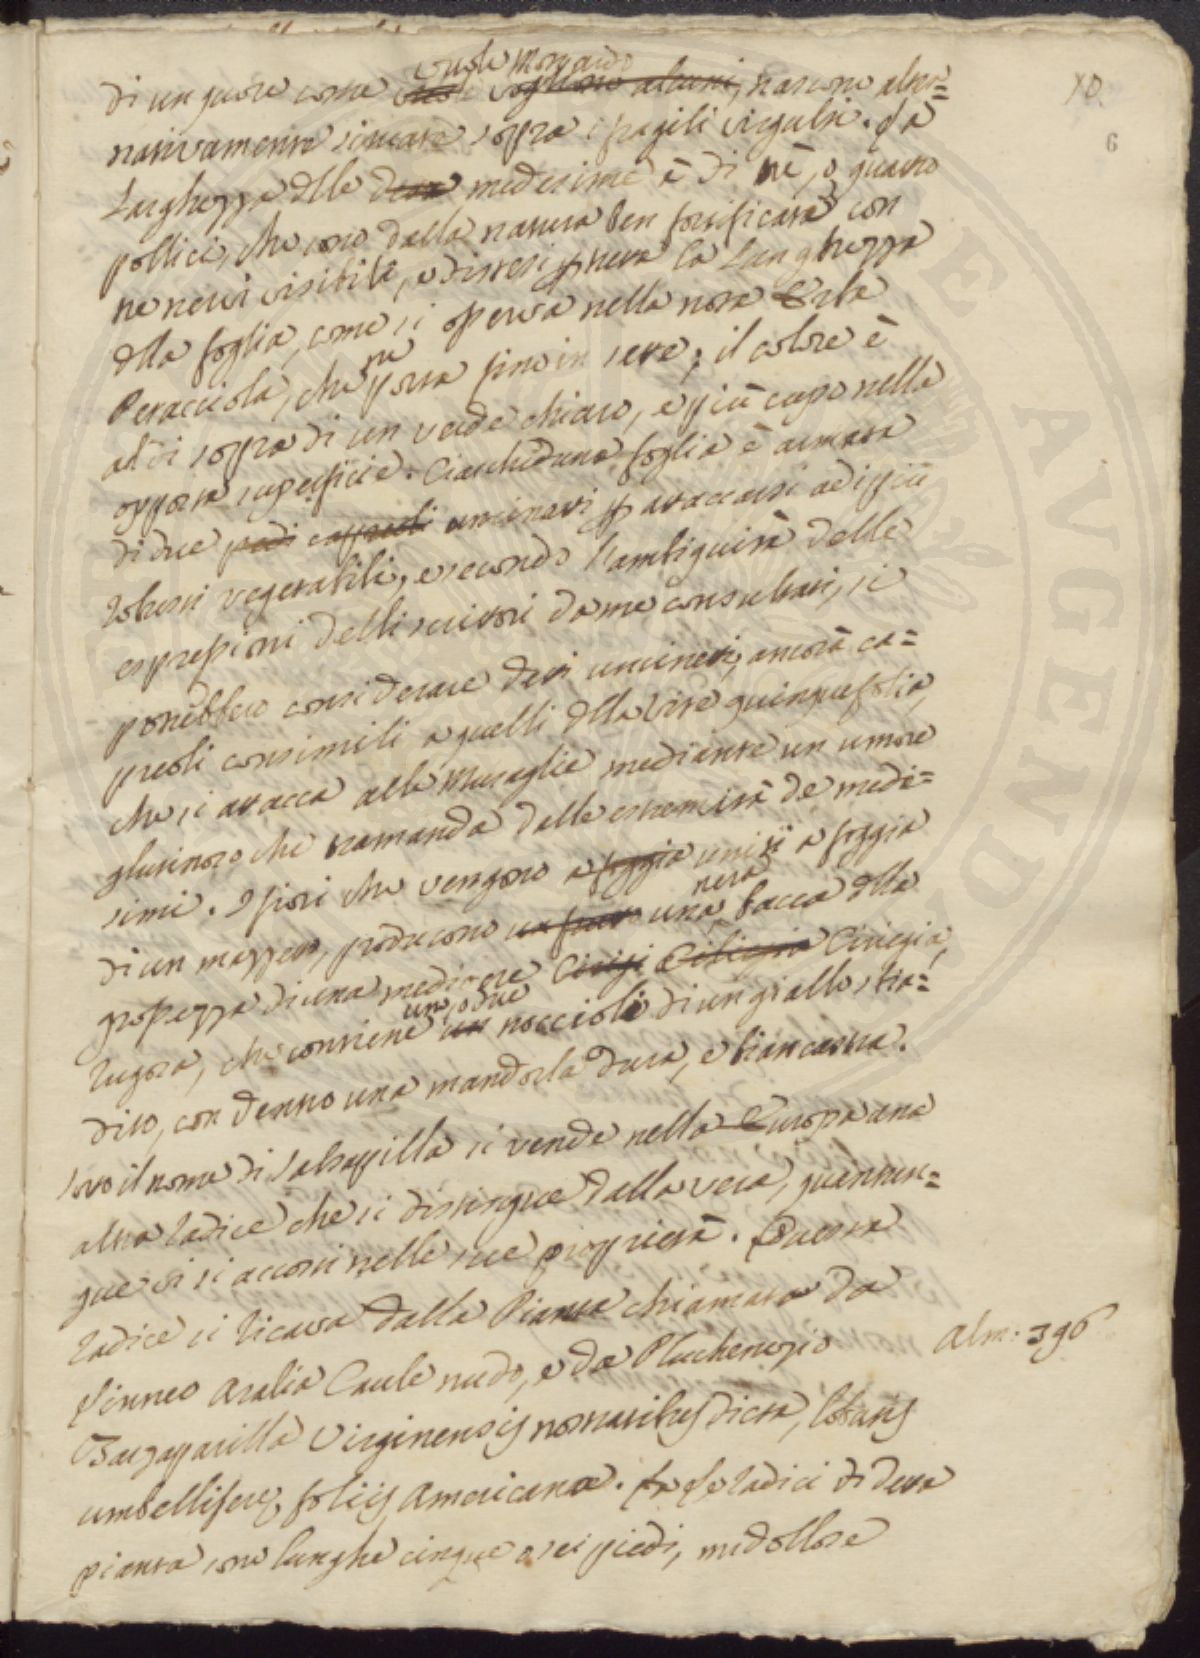 10.
6
vuole Monardo
di un cuore come vuole vogliono alcuni, nascono alter=
nativamente situate sopra i fragili virgulti. La
Larghezza delle dette medesime è di trè, o quatro
pollici, che sono dalla natura ben fortificate con
ne nervi visibili, e distesi per tutta la Lunghezza
della foglia, come si osserva nella nota Erba
Petacciola, che ne porta fino in sette; il colore è
al di sopra di un verde chiaro, e più cupo nella
opposta superficie. Ciascheduna foglia è armata
di due piedi capreoli uncinati per attaccarsi ad i più
robusti vegetabili, e secondo l'ambiguità delle
espressioni delli scrittori da me consultati, si
potrebbero considerare detti uncineti, ancora ca=
preoli consimili a quelli della Vite quinquefolia,
che si attacca alle Muraglie mediante un umore
glutinoso che tramanda dalle estremità de medi=
simi. I fiori che vengono a foggia uniti a foggia
di un mazzetto, producono un frutto una nera bacca della
grossezza di una mediocre Ciriegia Ciliegia Ciriegia,
rugosa, che contiene un uno, o due noccioli di un giallo sbia=
dito, con dentro una mandorla dura, e biancastra.
Sotto il nome di Salsapilla si vende nella Europa una
altra radice che si distingue dalla vera, quantun=
que vi si accosti nelle sue proprietà. Questa
radice si ricava dalla Pianta chiamata da
Linneo Aralia Caule nudo, e da Pluchenezio
Alm. 396
Zarzaparilla Virginensis nostratibus dicta, lobatis
umbelliferæ foliis Americana. La Le radici di detta
pianta sono lunghe cinque o sei piedi, midollose